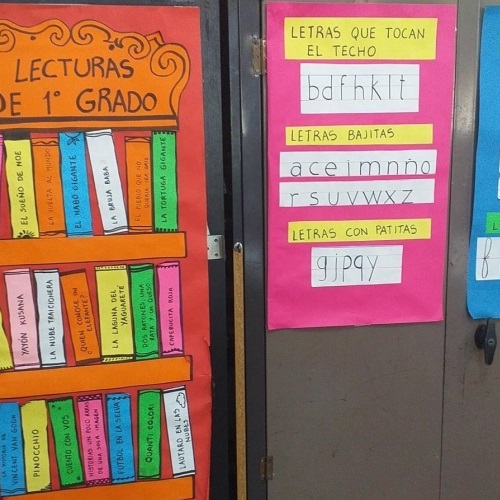 LECTURAS
DE 1° GRADO
EL SUEÑO DE NOE
LA VUELTA AL MUNDO
EL NABO GIGANTE
LA BRUJA BABA
EL PUEBLO QUE NO QUERÍA SER GRIS
LA TORTUGA GIGANTE
YAYÓN KUSANA
LA NUBE TRAICIONERA
QUIEN CONOCE UN ELEFANTE?
LA LAGUNA DEL YAGUARETÉ
DOS RATONES UNA RATA Y UN QUESO
CAPERUCITA ROJA
LA HISTORIA DE VINCENT VAN GOGH
PINOCCHIO
CUENTO CON VOS
HISTORIAS UN POLO ARRIBA DE UNA SOLA IMAGEN
FUTBOL EN LA SELVA
QUANTI COLORI
LAUTARO EN LAS NUBES
LETRAS QUE TOCAN
EL TECHO
bdfhklt
LETRAS BAJITAS
aceimnño
rsuvwxz
LETRAS CON PATITAS
gjpqy